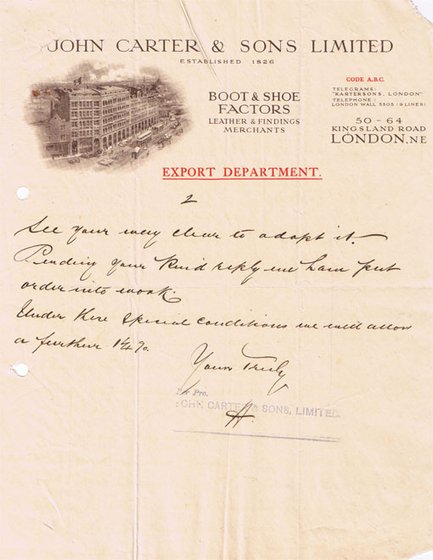 JOHN CARTER & SONS LIMITED
ESTABLISHED 1826
CODE A.B.C.
TELEGRAMS:
"KARTERSONS, LONDON"
TELEPHONE:
LONDON WALL 5305 (9 LINES)
BOOT & SHOE
FACTORS
LEATHER & FINDINGS
MERCHANTS
50 - 64
KINGSLAND ROAD
LONDON, N.E
EXPORT DEPARTMENT.
2
See your way clear to adopt it.
Pending your kind reply we have put
order into work.
Under these special conditions we will allow
a further 1¼%.
Yours Truly
Per Pro.
JOHN CARTER & SONS, LIMITED.